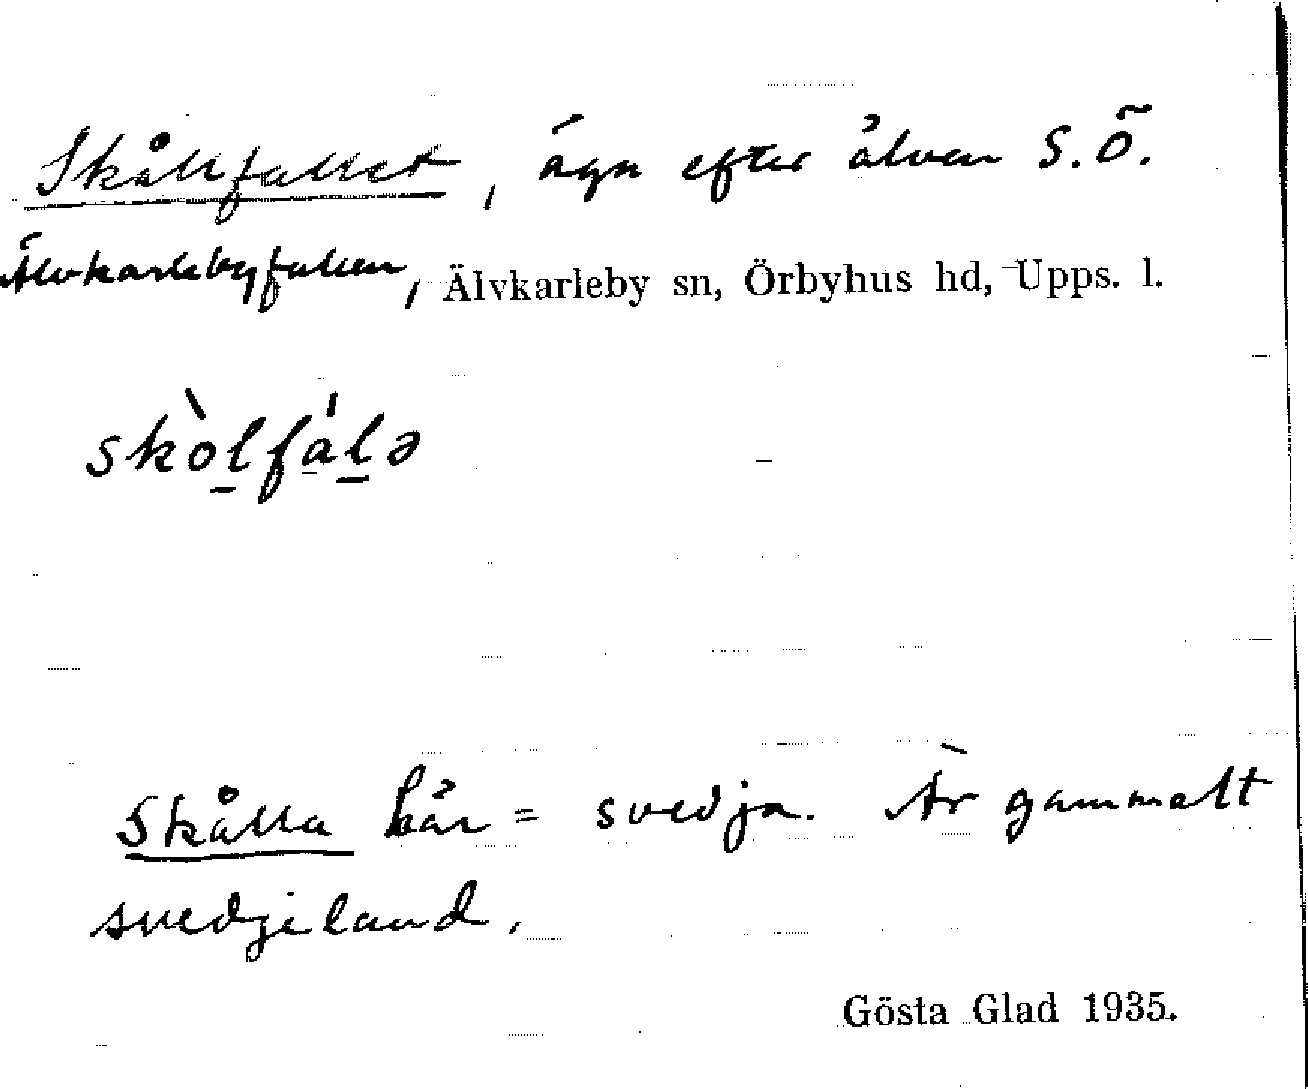 Skållfallet, ägn efter älven S.Ö.
Älvkarlebyfallen, Älvkarleby sn, Örbyhus hd, Upps. l.
skòlfálə
Skålla här = svedja. Är gammalt
svedjeland.
Gösta Glad 1935.